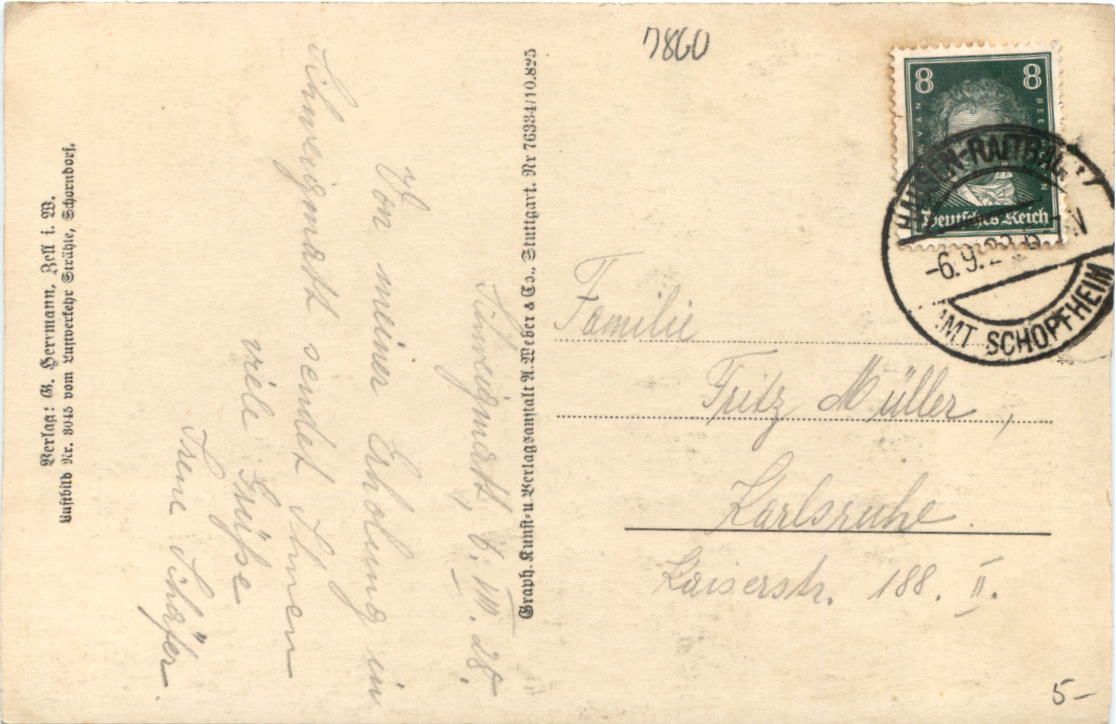 7860
8 8
VAN BEE
Deutsches Reich
HAUSEN-RAITBACH
-6.9.28
AMT SCHOPFHEIM
Schweigmatt, 6. VIII. 28.
Von meiner Erholung in
Schweigmatt sendet Ihnen
viele Grüße
Irene Schäfer.
Familie
Fritz Müller,
Karlsruhe.
Kaiserstr. 188. II.
Graph. Kunst- u. Verlagsanstalt A. Weber & Co., Stuttgart. Nr 76334/10.825
Verlag: G. Herrmann, Zell i. W.
Luftbild Nr. 8045 vom Luftverkehr Strähle, Schorndorf.
5-